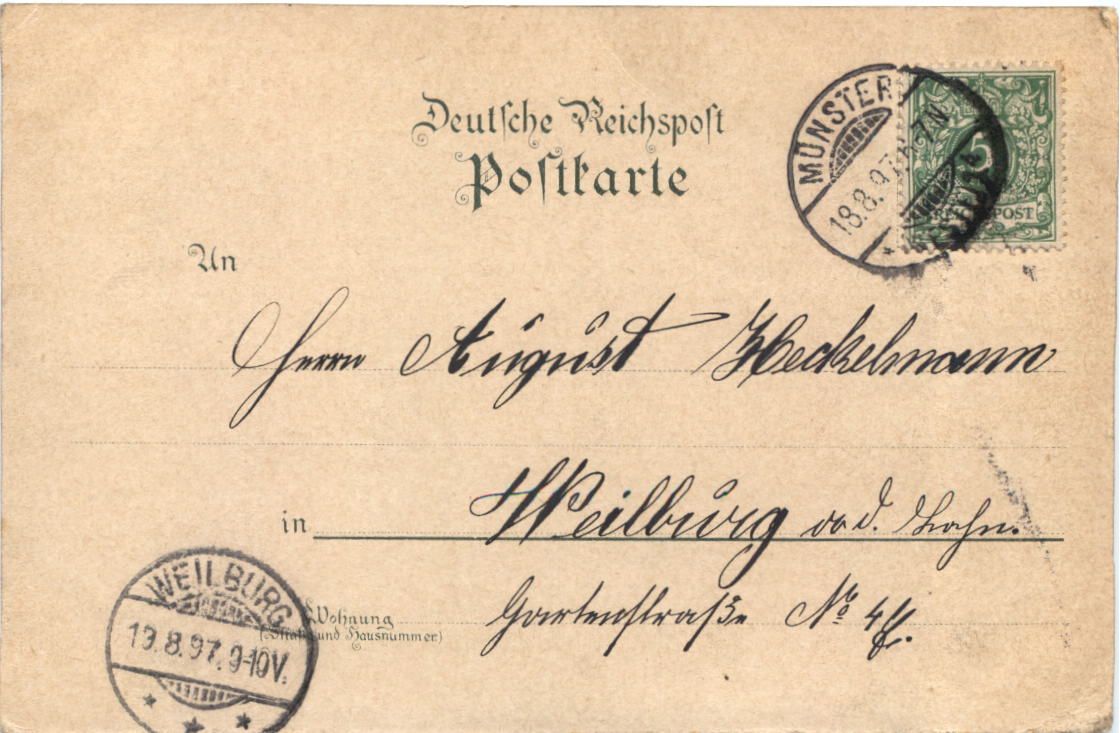 Deutsche Reichspost
Postkarte
MÜNSTER
18.8.97.
7N
5
REICHSPOST
An
Herrn August Heckelmann
in Weilburg a. d. Lahn.
Gartenstraße No 4
Wohnung
(Straße und Hausnummer)
WEILBURG
19.8.97. 9-10V.